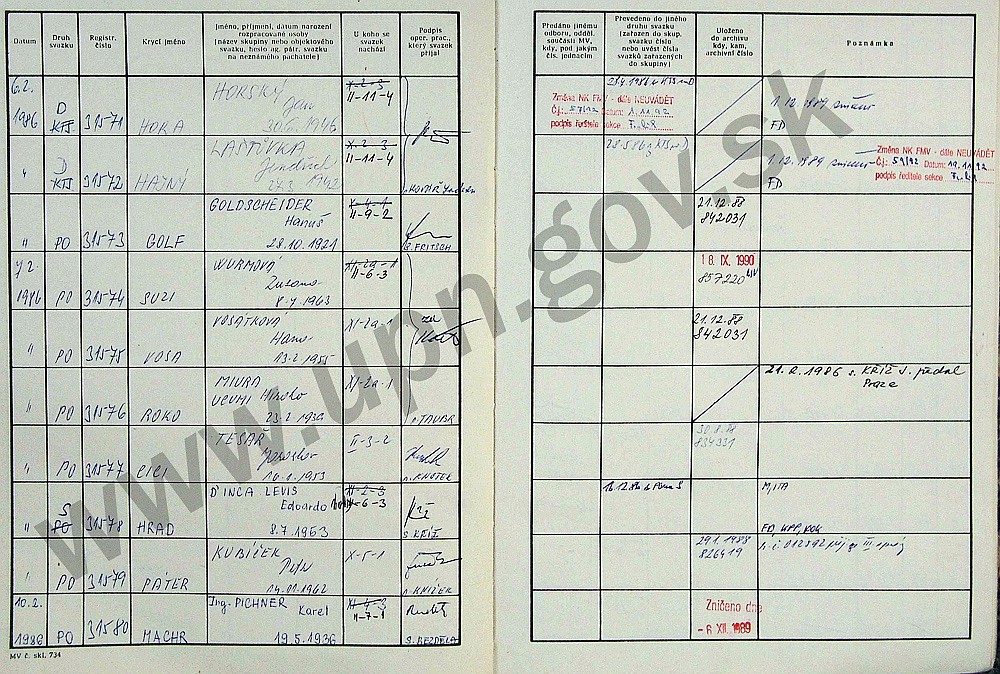 Datum
Druh svazku
Registr. číslo
Krycí jméno
Jméno, příjmení, datum narození
rozpracované osoby
(název skupiny nebo objektového
svazku, heslo ag. pátr. svazku
na neznámého pachatele)
U koho se
svazek
nachází
Podpis
oper. prac.,
který svazek
přijal
Předáno jinému
odboru, odděl.
součásti MV,
kdy, pod jakým
čís. jednacím
Převedeno do jiného
druhu svazku
(zařazen do skup.
svazku číslo
nebo uvést čísla
svazků zařazených
do skupiny)
Uloženo
do archivu
kdy, kam,
archivní číslo
Poznámka
6.2.
1986
D
KTS
31571
HORA
HORSKÝ
Jan
X-2-3
II-11-4
Změna NK FMV - dále NEUVÁDĚT
Č.j.: 57/92 Datum: 1.11.92
podpis ředitele sekce
1.12.1989
FD
"
D
KTS
31572
HAJNÝ
LAŠTŮVKA
Jindřich
X-2-3
II-11-4
1.12.1989
FD
Změna NK FMV - dále NEUVÁDĚT
Č.j.: 59/92 Datum: 19.11.92
podpis ředitele sekce
"
PO
31573
GOLF
GOLDSCHEIDER
Hanuš
28.10.1921
II-9-2
FRITSCH
21.12.88
842031
7.2.
1986
PO
31574
SUZI
WURMOVÁ
Zuzana
8.7.1963
II-6-3
18. IX. 1990
857220
"
PO
31575
VOSA
VOSÁTKOVÁ
Hana
13.2.1955
XI-2a-1
za
21.12.88
842031
"
PO
31576
ROKO
MIURA
UCUMI Hiroko
23.2.1936
XI-2a-1
TAUBR
21. 2. 1986 s. KŘÍŽ J. předal
Praze
"
PO
31577
CICI
TESAŘ
Jaroslav
16.1.1953
II-3-2
30.8.88
834931
"
S
PO
31578
HRAD
D'INCA LEVIS
Edoardo
8.7.1953
II-2-3
II-6-3
S. KŘÍŽ
M, ITA
FD, UPP, KOK
"
PO
31579
PÁTER
KUBÍČEK
Petr
14.01.1962
X-5-1
KNÍŽEK
29.1.1988
826419
10.2.
1986
PO
31580
MACHR
Ing. PICHNER
Karel
19.5.1936
II-7-1
S. BEZDĚLA
Zničeno dne
- 6 XII. 1989
MV č. skl. 734
www.upn.gov.sk